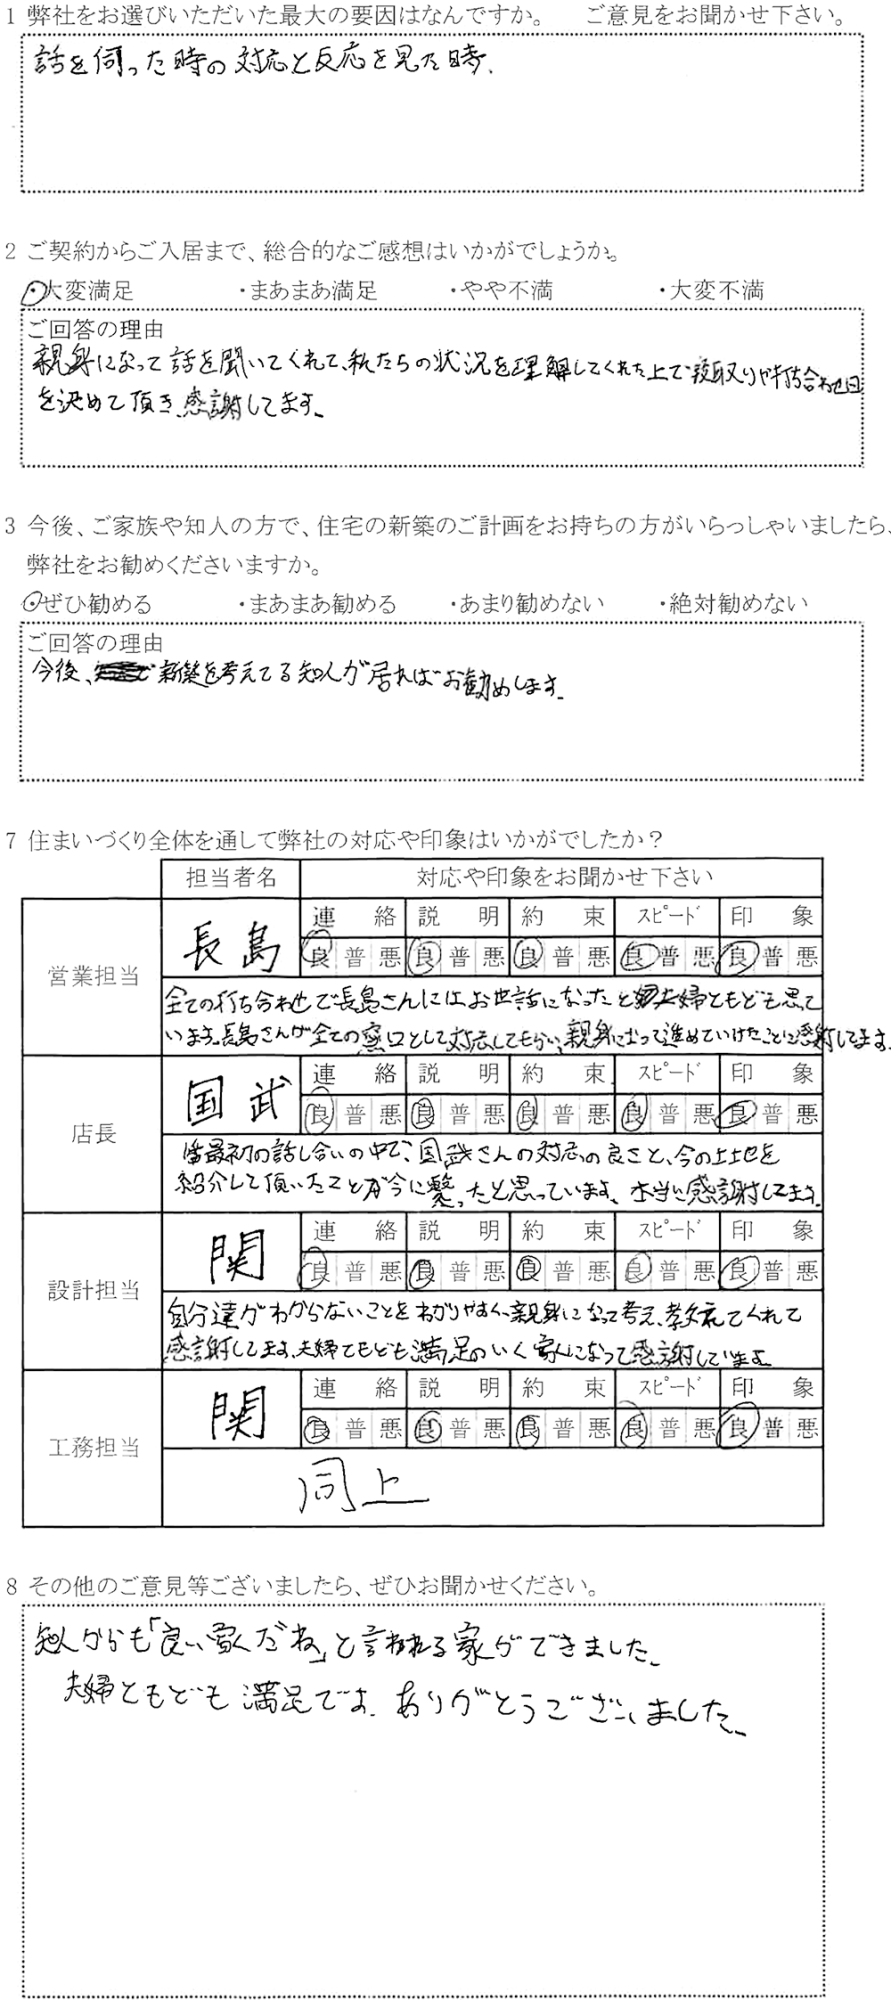 1 弊社をお選びいただいた最大の要因はなんですか。　ご意見をお聞かせ下さい。
話を伺った時の対応と反応を見た時.
2 ご契約からご入居まで、総合的なご感想はいかがでしょうか。
・大変満足　・まあまあ満足　・やや不満　・大変不満
ご回答の理由
親身になって話を聞いてくれて、私たちの状況を理解してくれた上で段取りや打ち合わせ日
を決めて頂き、感謝してます。
3 今後、ご家族や知人の方で、住宅の新築のご計画をお持ちの方がいらっしゃいましたら、
弊社をお勧めくださいますか。
・ぜひ勧める　・まあまあ勧める　・あまり勧めない　・絶対勧めない
ご回答の理由
今後、新築を考えてる知人が居ればお勧めします。
7 住まいづくり全体を通して弊社の対応や印象はいかがでしたか？
担当者名　対応や印象をお聞かせ下さい
営業担当　長島
連絡　説明　約束　スピード　印象
良 普 悪　良 普 悪　良 普 悪　良 普 悪　良 普 悪
全ての打ち合わせで長島さんにはお世話になったと夫婦ともども思って
います。長島さんが全ての窓口として対応してもらい、親身になって進めていけたことに感謝してます。
店長　国武
連絡　説明　約束　スピード　印象
良 普 悪　良 普 悪　良 普 悪　良 普 悪　良 普 悪
最初の話し合いの中で、国武さんの対応の良さと、今の土地を
紹介して頂いたことが今に繋ったと思っています。本当に感謝してます。
設計担当　関
連絡　説明　約束　スピード　印象
良 普 悪　良 普 悪　良 普 悪　良 普 悪　良 普 悪
自分達がわからないことをわかりやすく、親身になって考え、教えてくれて
感謝してます。夫婦ともども満足のいく家になって感謝しています。
工務担当　関
連絡　説明　約束　スピード　印象
良 普 悪　良 普 悪　良 普 悪　良 普 悪　良 普 悪
同上
8 その他のご意見等ございましたら、ぜひお聞かせください。
知人からも「良い家だね」と言われる家ができました。
夫婦ともども満足です。ありがとうございました。